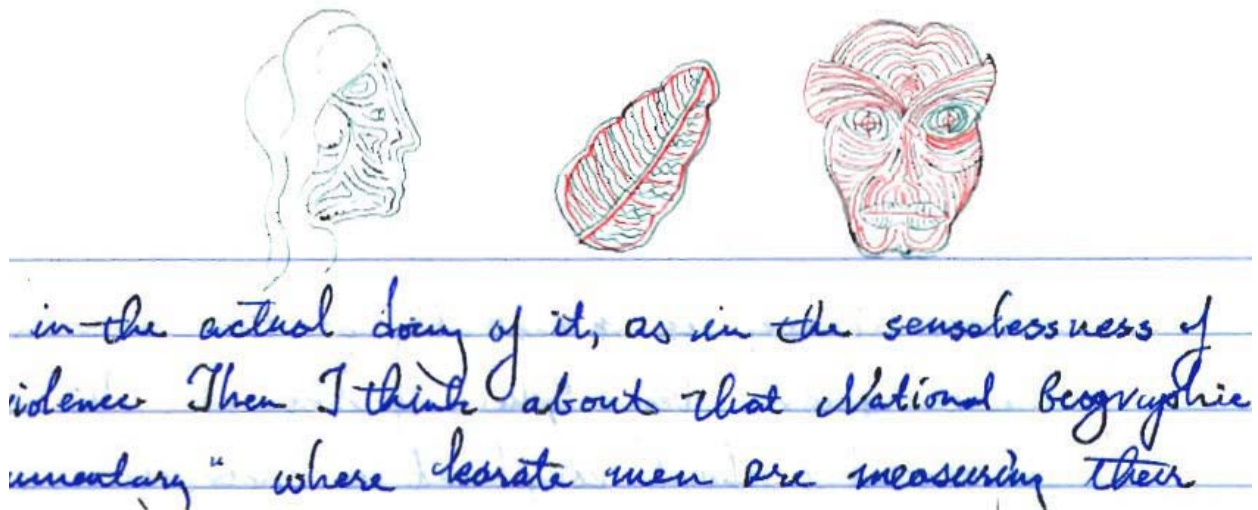 in the actual doing of it, as in the senselessness of
iolence. Then I think about that National Geographic
umentary" where karate men are measuring their